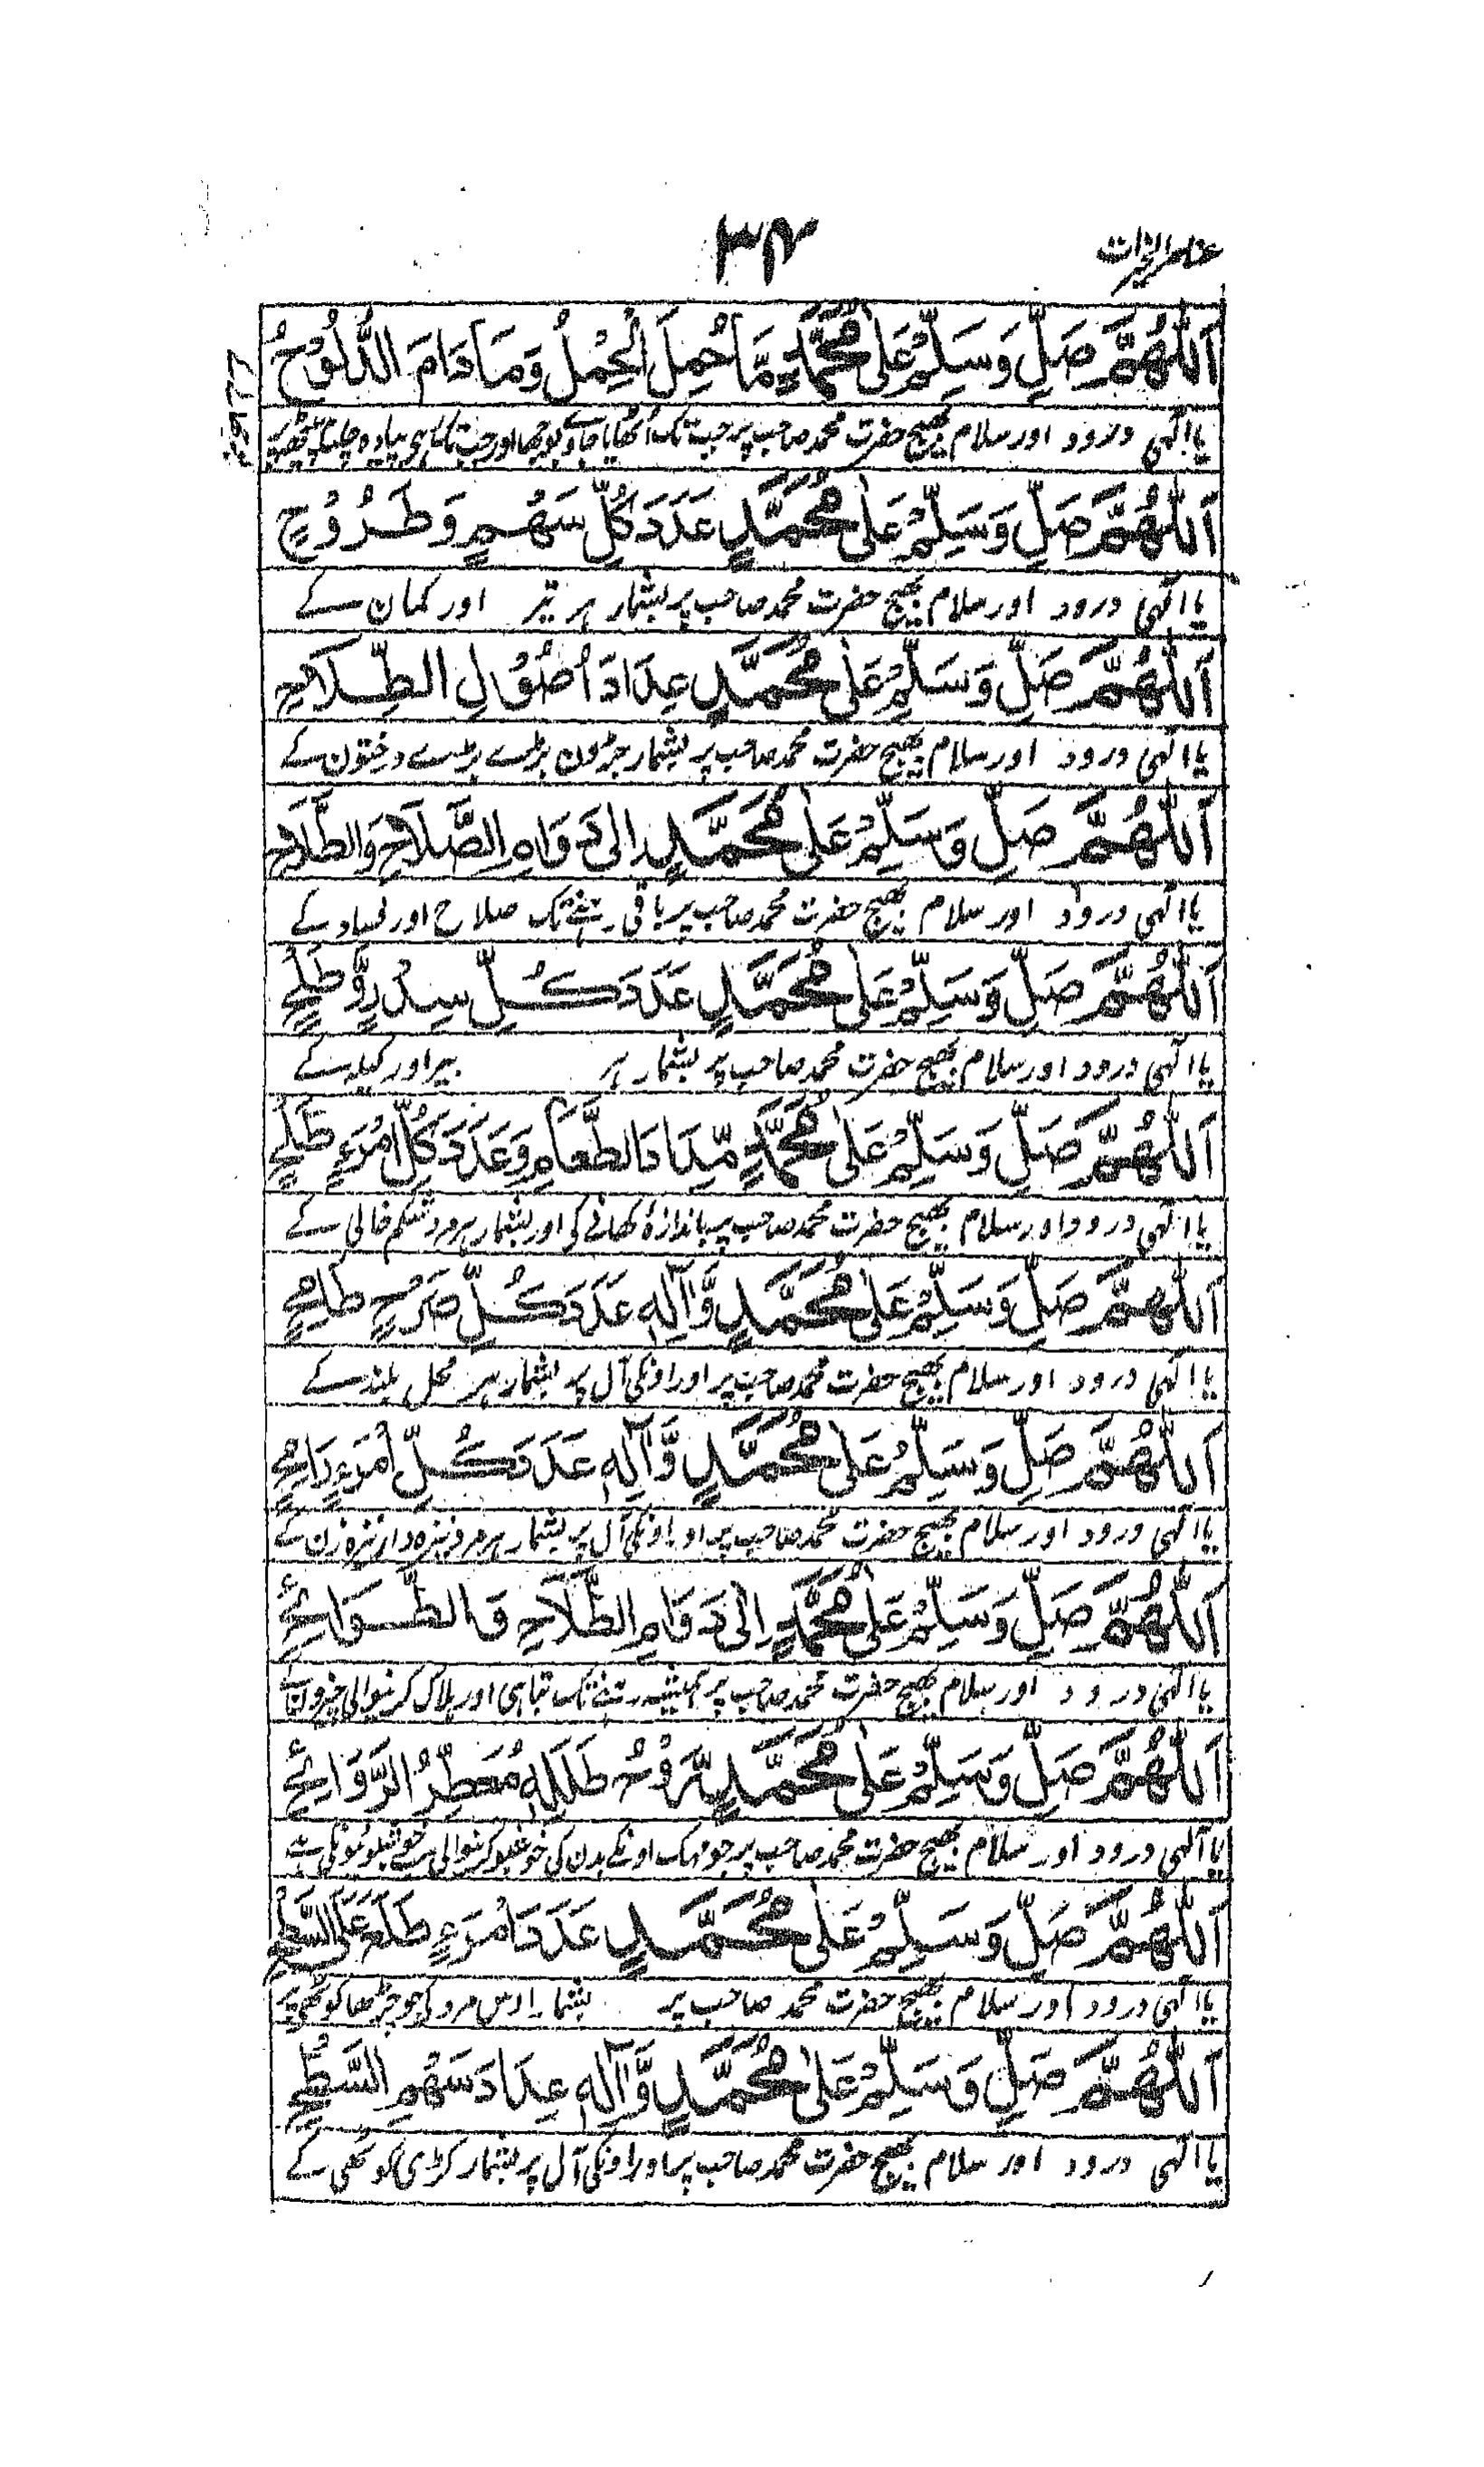 ۳۴
اَللّٰهُمَّ صَلِّ وَسَلِّمْ عَلٰى مُحَمَّدٍ مَّا حُمِلَ الْحِمْلُ وَمَا دَامَ الدُّلُوْحُ
یا الٰہی درود اور سلام بھیج حضرت محمد صاحب پر جب تک اٹھایا جاوے بوجھا اور جب تک
اَللّٰهُمَّ صَلِّ وَسَلِّمْ عَلٰى مُحَمَّدٍ عَدَدَ كُلِّ سَهْمٍ وَطَرُوْحٍ
یا الٰہی درود اور سلام بھیج حضرت محمد صاحب پر بشمار ہر تیر اور کمان کے
اَللّٰهُمَّ صَلِّ وَسَلِّمْ عَلٰى مُحَمَّدٍ عِدَادَ اُصُوْلِ الطِّلَاحِ
یا الٰہی درود اور سلام بھیج حضرت محمد صاحب پر بشمار جڑون بڑے بڑے درختون کے
اَللّٰهُمَّ صَلِّ وَسَلِّمْ عَلٰى مُحَمَّدٍ اِلٰى دَوَامِ الصَّلَاحِ وَالطَّلَاحِ
یا الٰہی درود اور سلام بھیج حضرت محمد صاحب پر باقی رہنے تک صلاح اور فساد کے
اَللّٰهُمَّ صَلِّ وَسَلِّمْ عَلٰى مُحَمَّدٍ عَدَدَ كُلِّ سِدْرٍ وَّطَلْحٍ
یا الٰہی درود اور سلام بھیج حضرت محمد صاحب پر بشمار ہر بیر اور کیلہ کے
اَللّٰهُمَّ صَلِّ وَسَلِّمْ عَلٰى مُحَمَّدٍ مِّدَادَ الطَّعَامِ وَعَدَدَ كُلِّ امْرَءٍ طَلْحٍ
یا الٰہی درود اور سلام بھیج حضرت محمد صاحب پر باندازۂ کھانے کی اور بشمار ہر مرد شکم خالی کے
اَللّٰهُمَّ صَلِّ وَسَلِّمْ عَلٰى مُحَمَّدٍ وَّاٰلِهٖ عَدَدَ كُلِّ صَرْحٍ طَامِحٍ
یا الٰہی درود اور سلام بھیج حضرت محمد صاحب پر اور اونکی آل پر بشمار ہر محل بلند کے
اَللّٰهُمَّ صَلِّ وَسَلِّمْ عَلٰى مُحَمَّدٍ وَّاٰلِهٖ عَدَدَ كُلِّ امْرَءٍ رَامِحٍ
یا الٰہی درود اور سلام بھیج حضرت محمد صاحب پر اور اونکی آل پر بشمار ہر مرد نیزہ دار نیزہ زن کے
اَللّٰهُمَّ صَلِّ وَسَلِّمْ عَلٰى مُحَمَّدٍ اِلٰى دَوَامِ الطَّلَاحِ وَالطَّوَائِحِ
یا الٰہی درود اور سلام بھیج حضرت محمد صاحب پر ہمیشہ رہنے تک تباہی اور ہلاک کرنیوالی چیزون کے
اَللّٰهُمَّ صَلِّ وَسَلِّمْ عَلٰى مُحَمَّدٍ طَلَلِهٖ مُعَطِّرُ الرَّوَائِحِ
یا الٰہی درود اور سلام بھیج حضرت محمد صاحب پر جو مہک اونکے بدن کی خوشبو کرنیوالی ہے
اَللّٰهُمَّ صَلِّ وَسَلِّمْ عَلٰى مُحَمَّدٍ عَدَدَ امْرَءٍ طَلَعَ عَلَى السَّطْحِ
یا الٰہی درود اور سلام بھیج حضرت محمد صاحب پر بشمار اوس مرد کی جو چڑھا کوٹھی پر
اَللّٰهُمَّ صَلِّ وَسَلِّمْ عَلٰى مُحَمَّدٍ وَّاٰلِهٖ عِدَادَ سَهْمِ السَّطْحِ
یا الٰہی درود اور سلام بھیج حضرت محمد صاحب پر اور اونکی آل پر بشمار کڑی کوٹھی کے